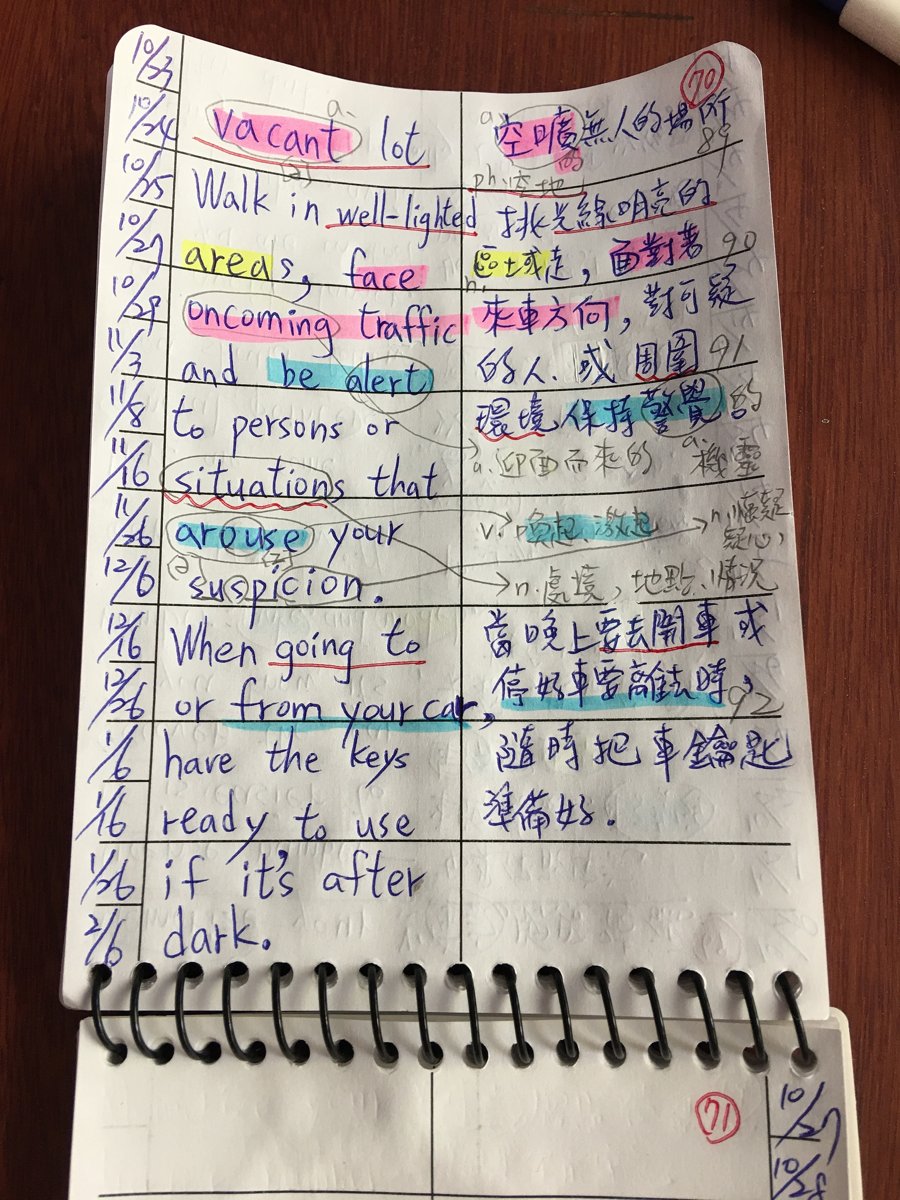 70
10/23
10/24
10/25
10/27
10/29
11/3
11/8
11/16
11/26
12/6
12/16
12/26
1/6
1/16
1/26
2/6
a.
vacant lot
(2)
Walk in well-lighted
areas, face
oncoming traffic
and be alert
to persons or
situations that
arouse your
(2)
suspicion.
When going to
or from your car,
have the keys
ready to use
if it's after
dark.
a.
空曠無人的場所
89
的
ph.空地
挑光線明亮的
區域走，面對著
90
n.
來車方向，對可疑
的人、或周圍
91
環境保持警覺的
a.迎面而來的
a.機靈
v.喚起、激起
n.懷疑
疑心，
n.處境，地點、情況
當晚上要去開車或
停好車要離去時，
92
隨時把車鑰匙
準備好.
71
10/27
10/28